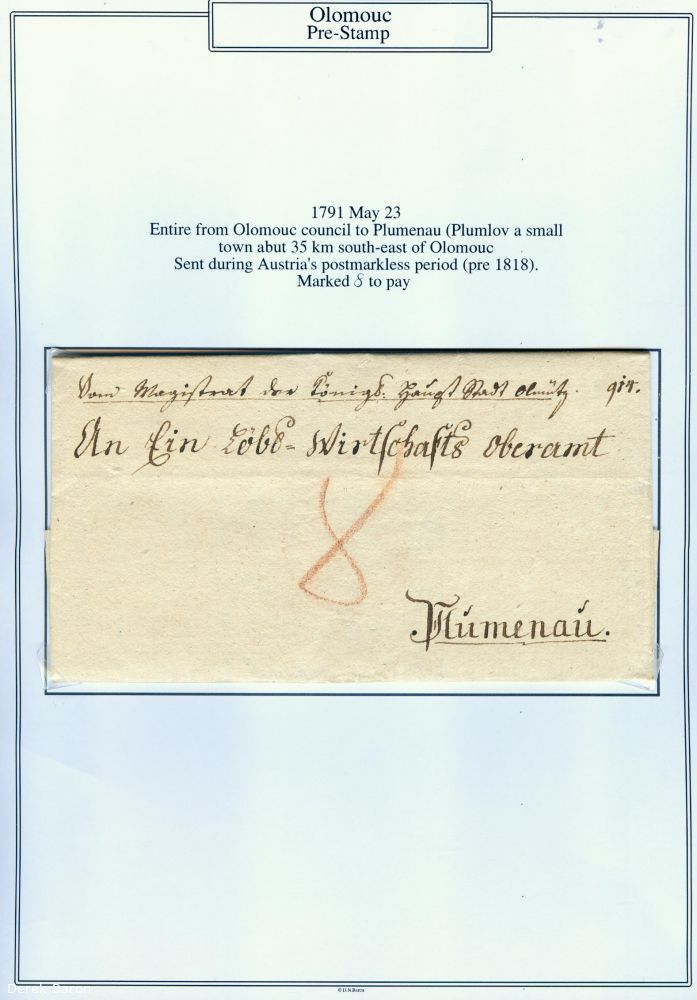 Olomouc
Pre-Stamp
1791 May 23
Entire from Olomouc council to Plumenau (Plumlov a small
town abut 35 km south-east of Olomouc
Sent during Austria's postmarkless period (pre 1818).
Marked 8 to pay
Vom Magistrat der Königl. Haupt Stadt Olmütz.
An Ein Löbl= Wirtschafts oberamt
8
Plumenau.
Derek Baron
© D.N.Baron